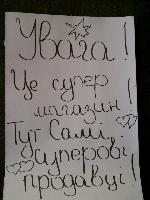 Увага!
Це супер
магазин!
Тут Самі,
суперові
продавці!